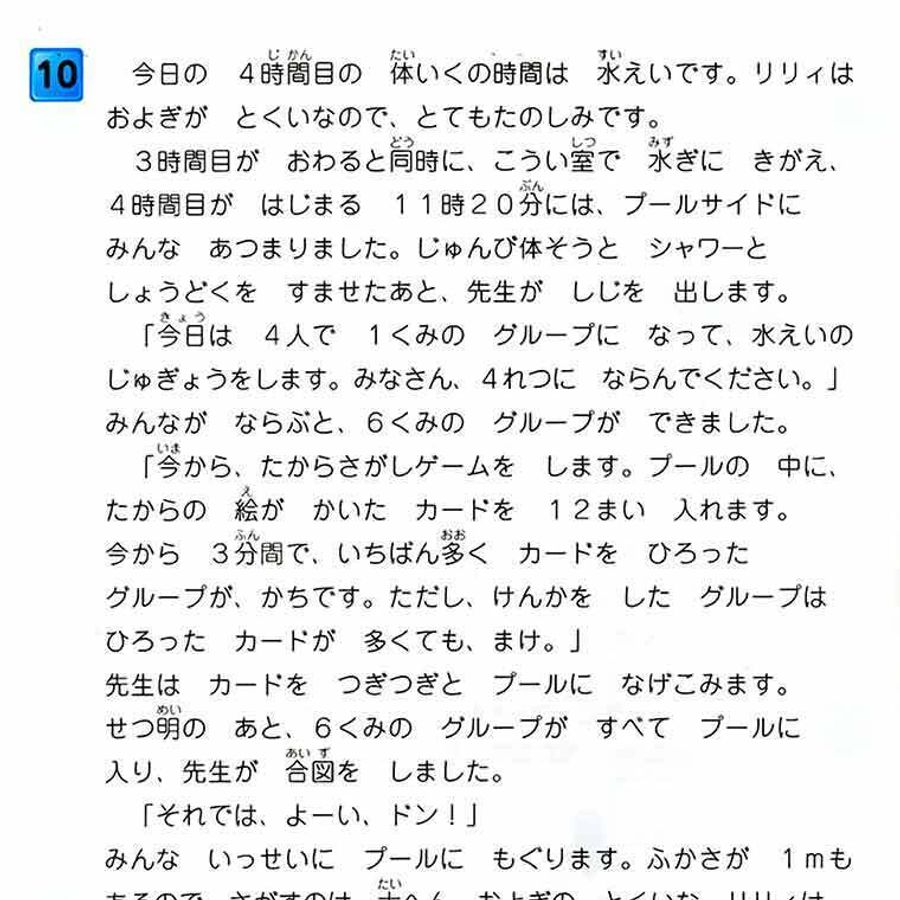 10
今日の　４時間目の　体いくの時間は　水えいです。リリィは
およぎが　とくいなので、とてもたのしみです。
３時間目が　おわると同時に、こうい室で　水ぎに　きがえ、
４時間目が　はじまる　１１時２０分には、プールサイドに
みんな　あつまりました。じゅんび体そうと　シャワーと
しょうどくを　すませたあと、先生が　しじを　出します。
「今日は　４人で　１くみの　グループに　なって、水えいの
じゅぎょうをします。みなさん、４れつに　ならんでください。」
みんなが　ならぶと、６くみの　グループが　できました。
「今から、たからさがしゲームを　します。プールの　中に、
たからの　絵が　かいた　カードを　１２まい　入れます。
今から　３分間で、いちばん多く　カードを　ひろった
グループが、かちです。ただし、けんかを　した　グループは
ひろった　カードが　多くても、まけ。」
先生は　カードを　つぎつぎと　プールに　なげこみます。
せつ明の　あと、６くみの　グループが　すべて　プールに
入り、先生が　合図を　しました。
「それでは、よーい、ドン！」
みんな　いっせいに　プールに　もぐります。ふかさが　１ｍも
あるので、さがすのは　大へん。およぎの　とくいな　リリィは